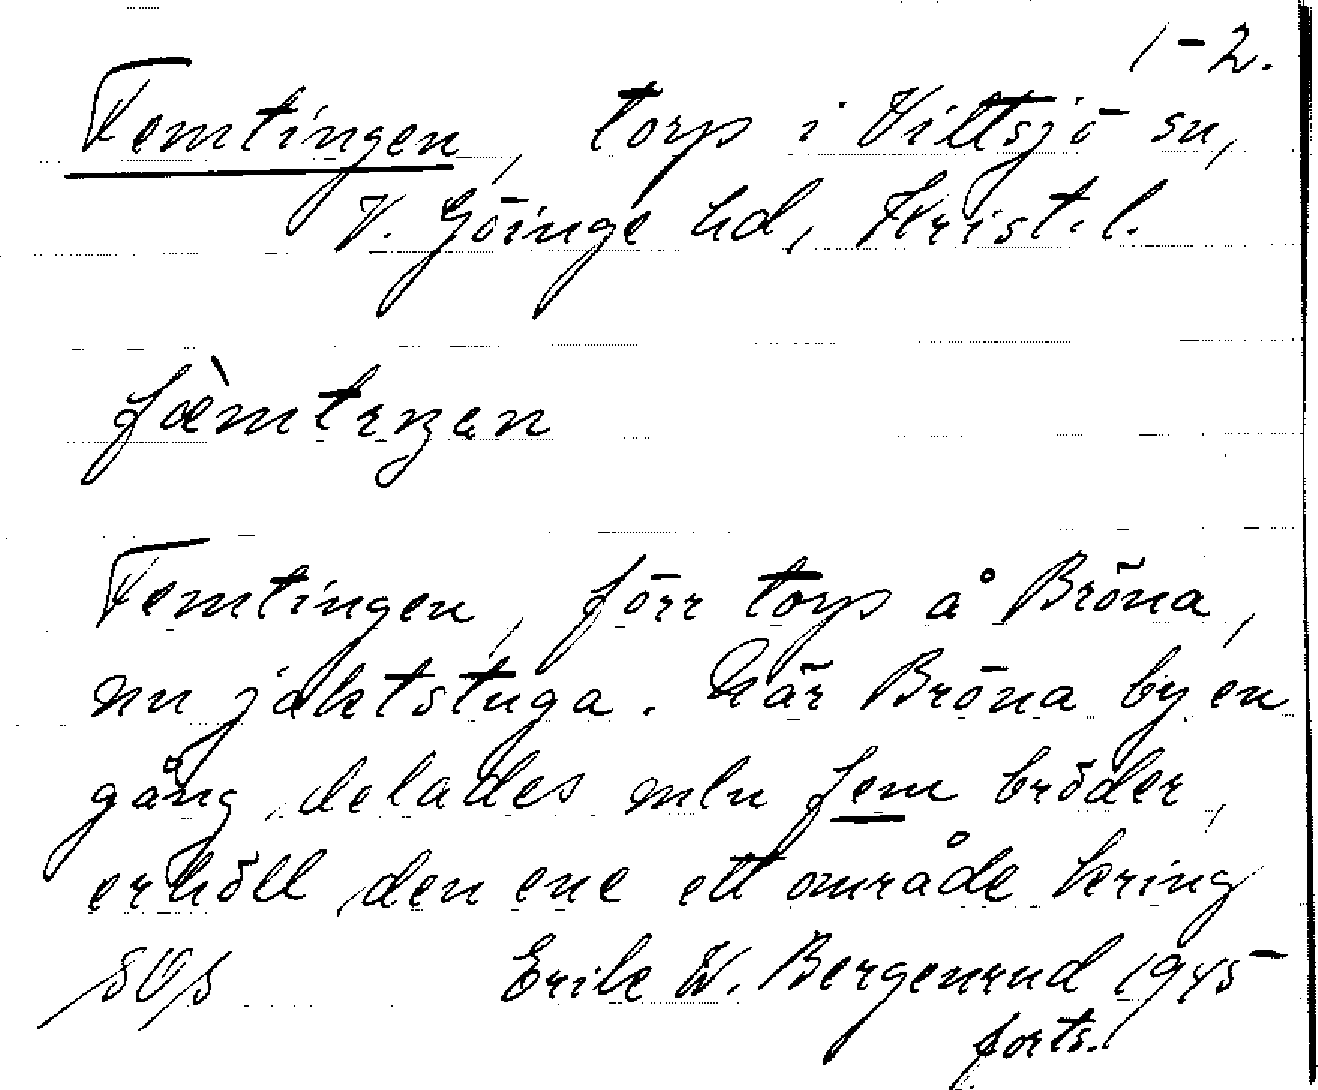 1-2.
Femtingen, torp i Vittsjö sn,
V. Göinge hd, Krist. l.
fæ̀mtıŋən
Femtingen, förr torp å Bröna,
nu jaktstuga. När Bröna by en
gång delades mln fem bröder,
erhöll den ene ett område kring
SOS Erik W. Bergenrud 1945
forts.